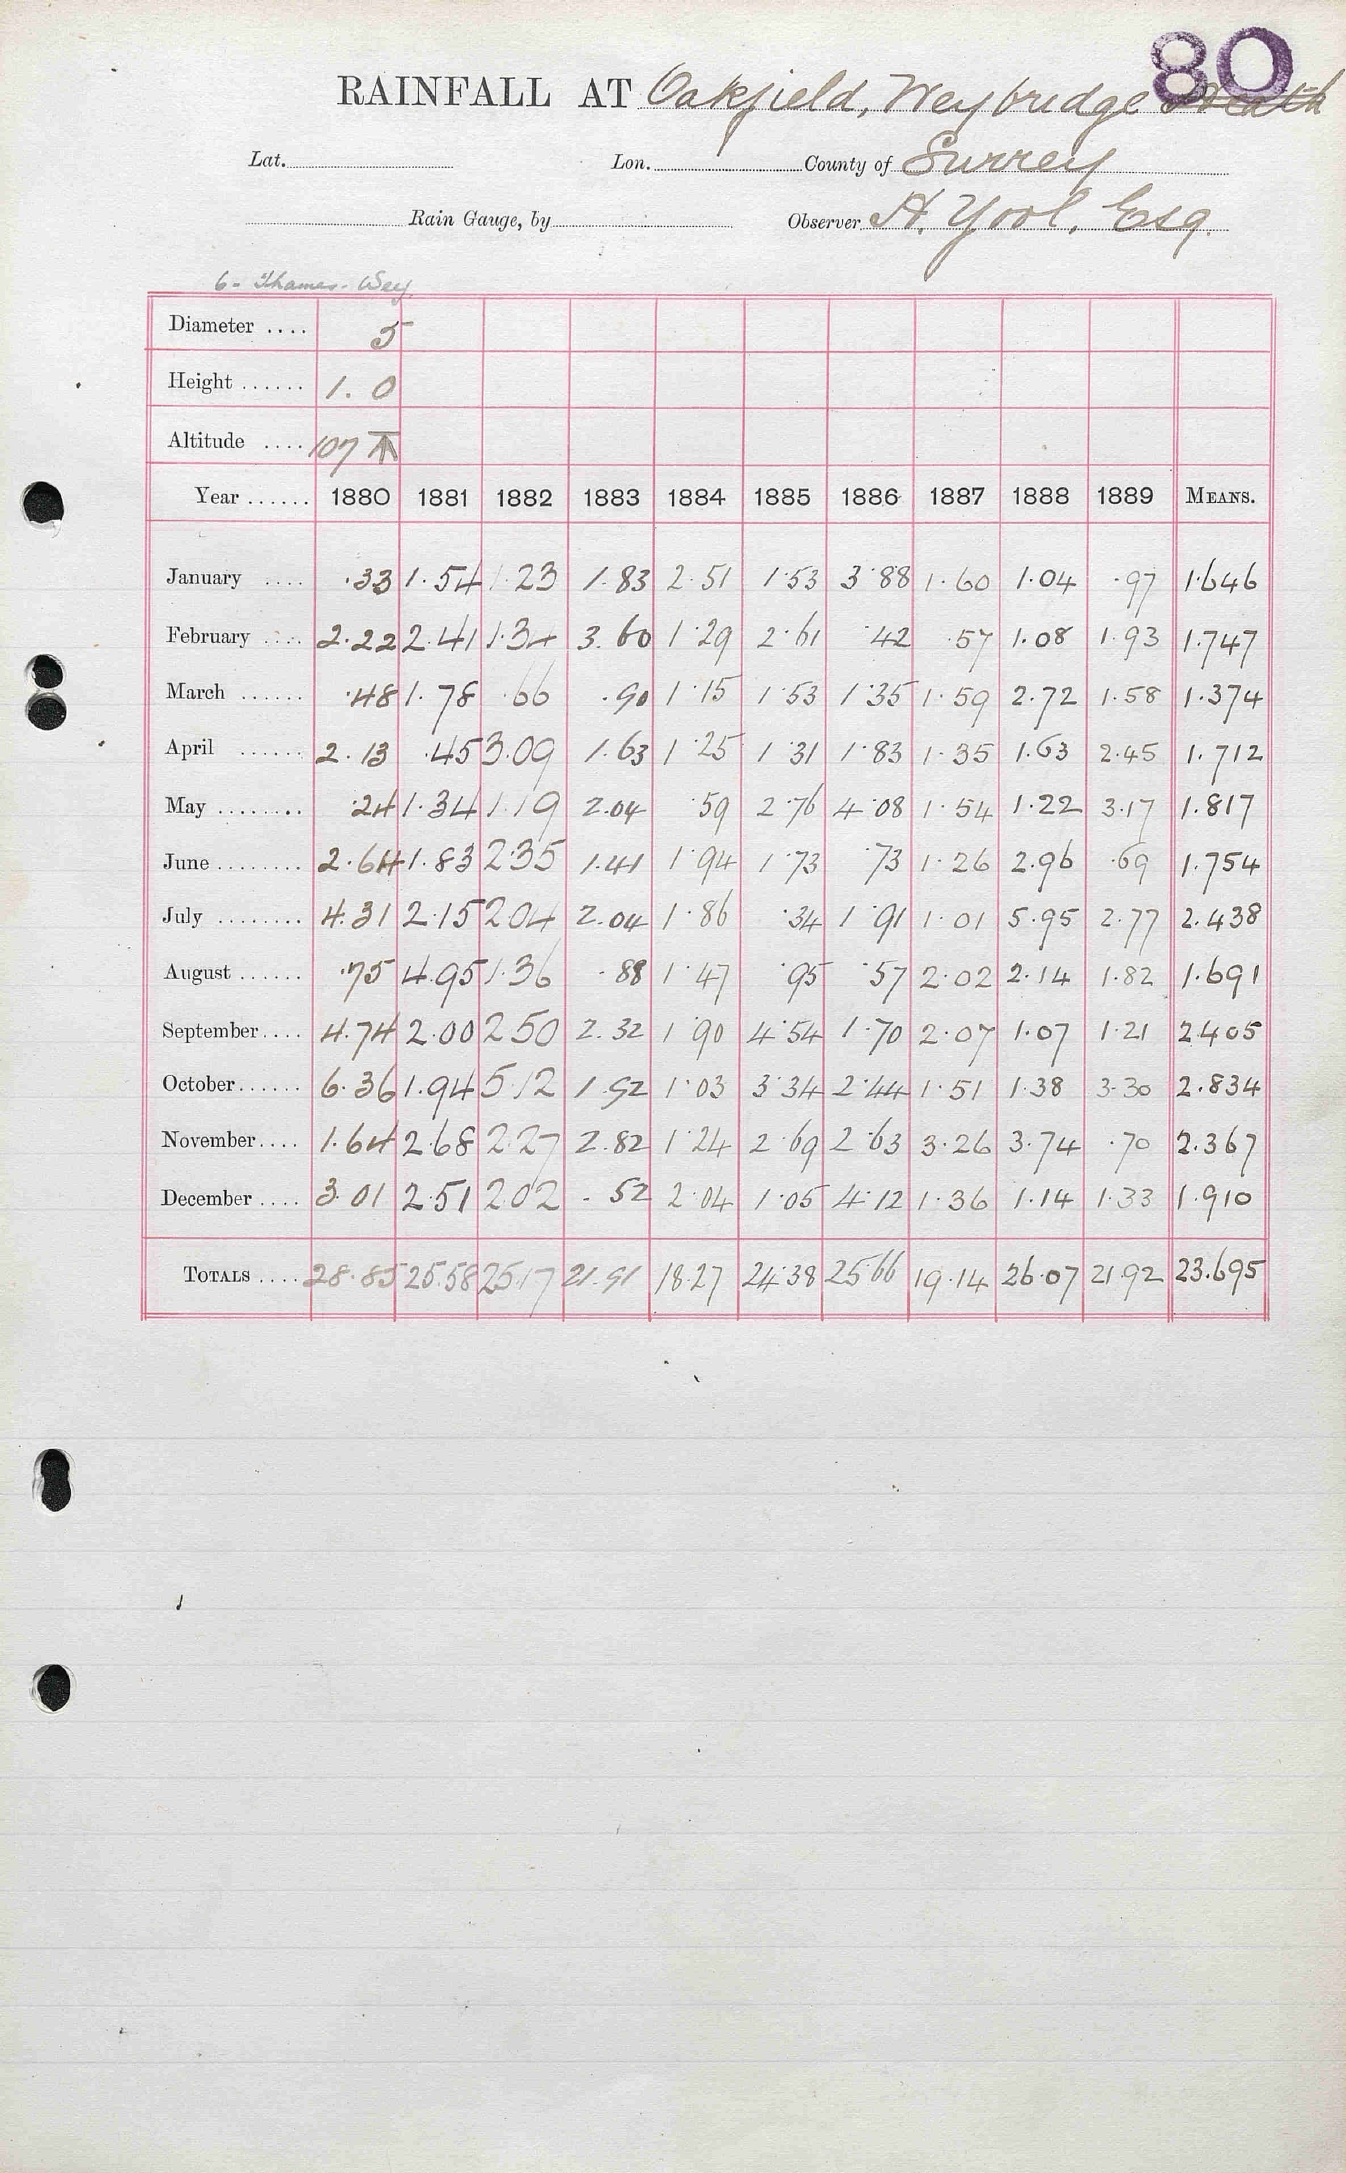 80
RAINFALL AT Oakfield, Weybridge Heath
Lat. Lon. County of Surrey
Rain Gauge, by Observer H. Yool, Esq.
6 - Thames - Wey
Diameter .... 5
Height ...... 1. 0
Altitude .... 107
Year ...... 1880 1881 1882 1883 1884 1885 1886 1887 1888 1889 MEANS.
January .... .33 1.54 1.23 1.83 2.51 1.53 3.88 1.60 1.04 .97 1.646
February .... 2.22 2.41 1.34 3.60 1.29 2.61 .42 .57 1.08 1.93 1.747
March ...... .48 1.78 .66 .90 1.15 1.53 1.35 1.59 2.72 1.58 1.374
April ...... 2.13 .45 3.09 1.63 1.25 1.31 1.83 1.35 1.63 2.45 1.712
May ........ .24 1.34 1.19 2.04 .59 2.76 4.08 1.54 1.22 3.17 1.817
June ........ 2.64 1.83 2.35 1.41 1.94 1.73 .73 1.26 2.96 .69 1.754
July ........ 4.31 2.15 2.04 2.04 1.86 .34 1.91 1.01 5.95 2.77 2.438
August ...... .75 4.95 1.36 .88 1.47 .95 .57 2.02 2.14 1.82 1.691
September .... 4.74 2.00 2.50 2.32 1.90 4.54 1.70 2.07 1.07 1.21 2.405
October ...... 6.36 1.94 5.12 1.92 1.03 3.34 2.44 1.51 1.38 3.30 2.834
November .... 1.64 2.68 2.27 2.82 1.24 2.69 2.63 3.26 3.74 .70 2.367
December .... 3.01 2.51 2.02 .52 2.04 1.05 4.12 1.36 1.14 1.33 1.910
TOTALS .... 28.85 25.58 25.17 21.91 18.27 24.38 25.66 19.14 26.07 21.92 23.695